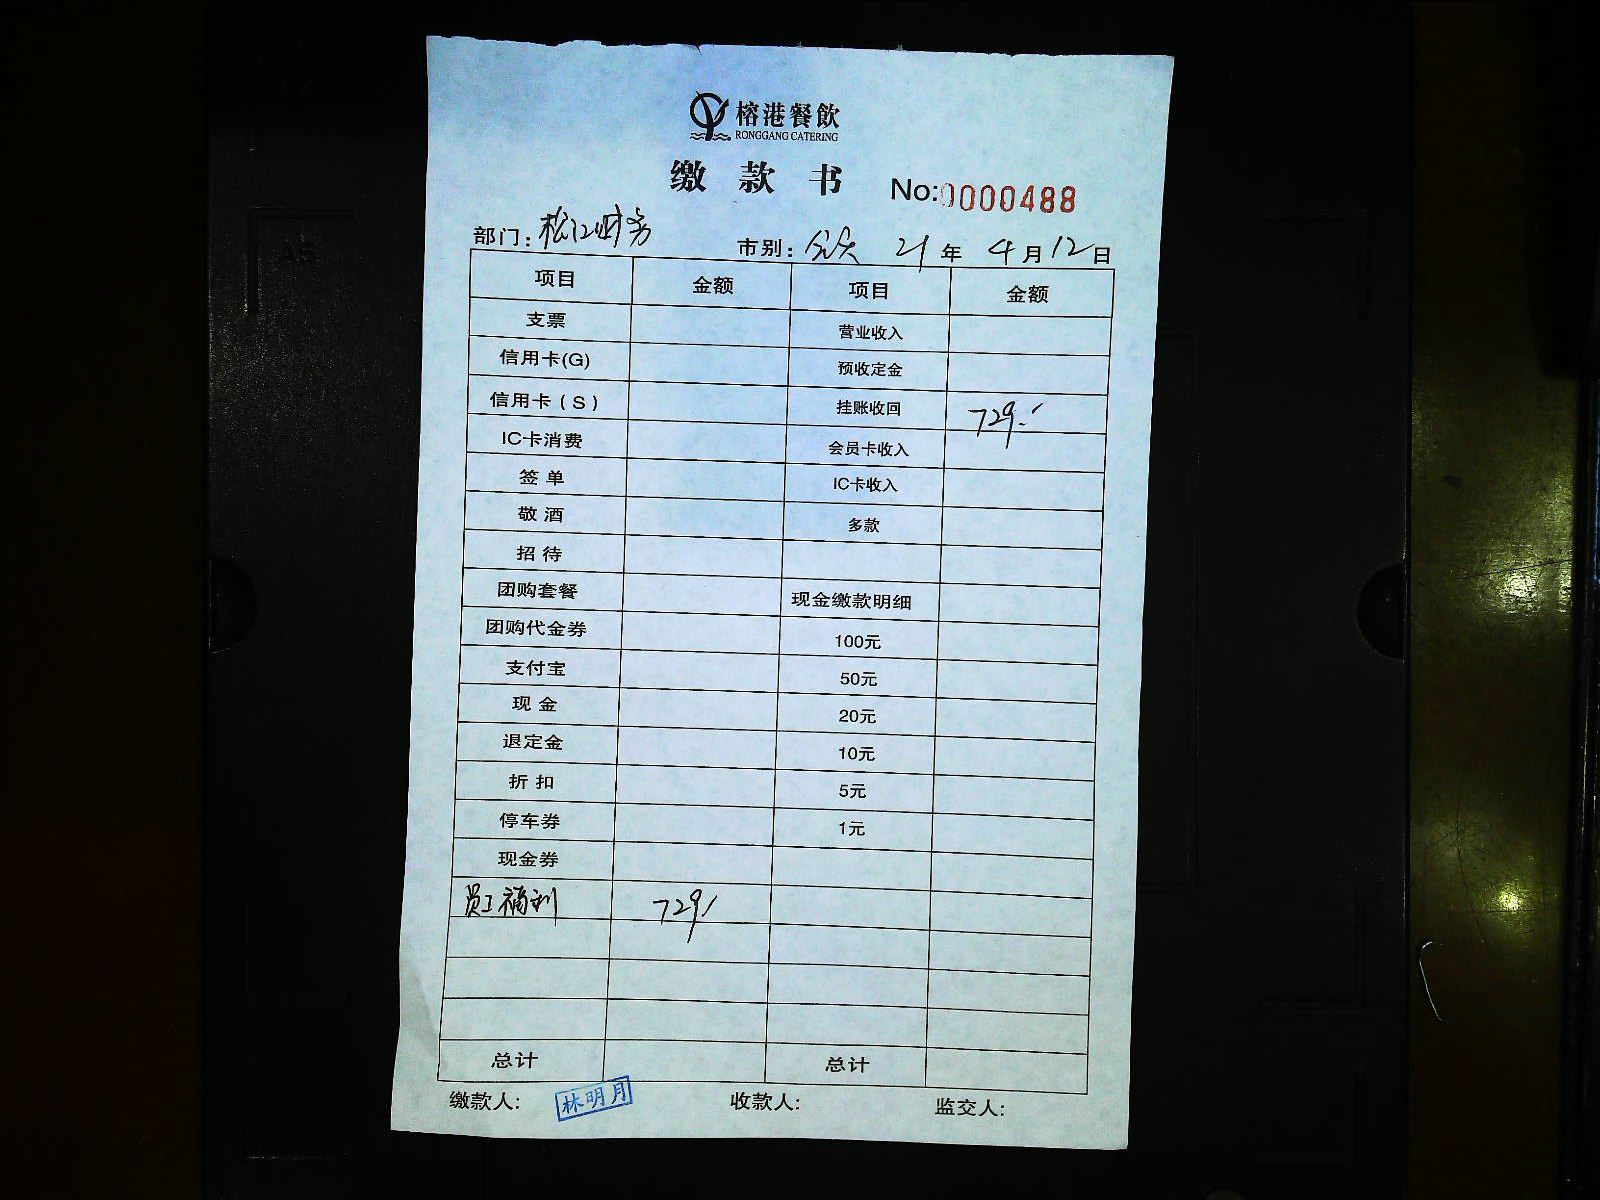 榕港餐飲
RONGGANG CATERING
缴款书 No:0000488
部门: 松江财务 市别: 全天 21年 4月12日
项目 金额 项目 金额
支票 营业收入
信用卡(G) 预收定金
信用卡(S) 挂账收回 729.-
IC卡消费 会员卡收入
签单 IC卡收入
敬酒 多款
招待
团购套餐 现金缴款明细
团购代金券 100元
支付宝 50元
现金 20元
退定金 10元
折扣 5元
停车券 1元
现金券
员工福利 729/
总计 总计
缴款人: 林明月 收款人: 监交人:
A5